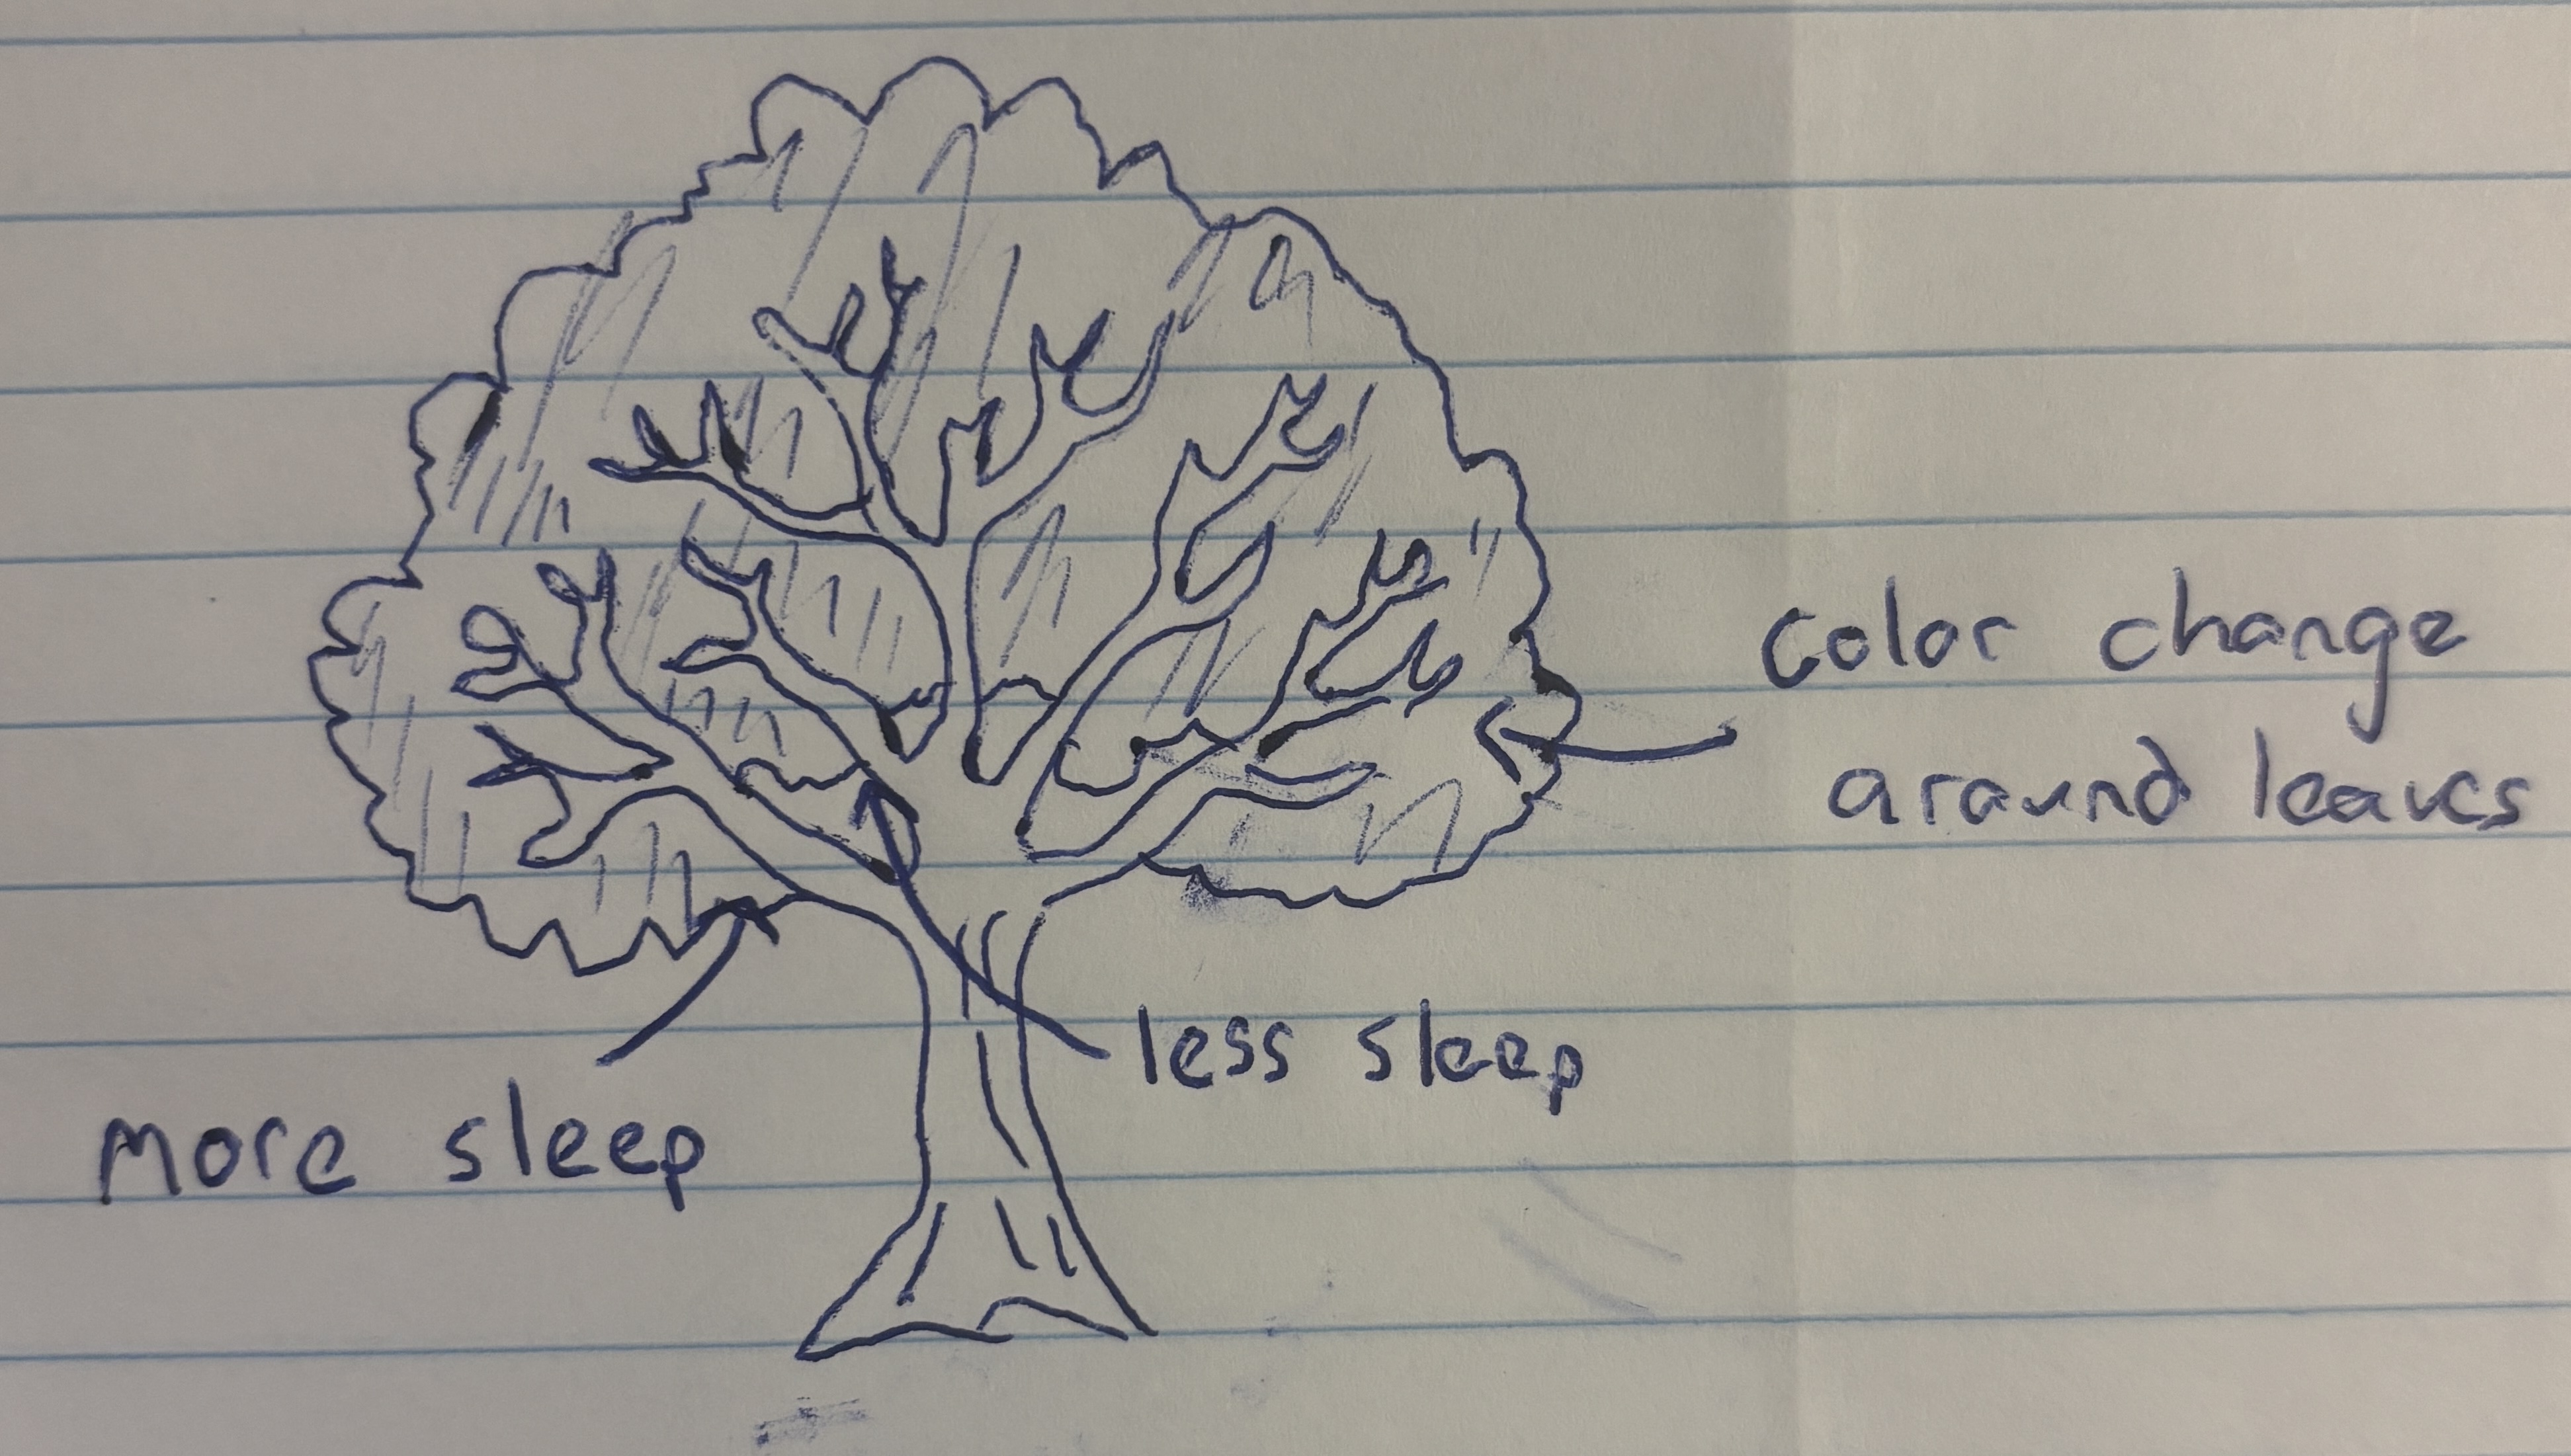 color change
around leaves
less sleep
more sleep